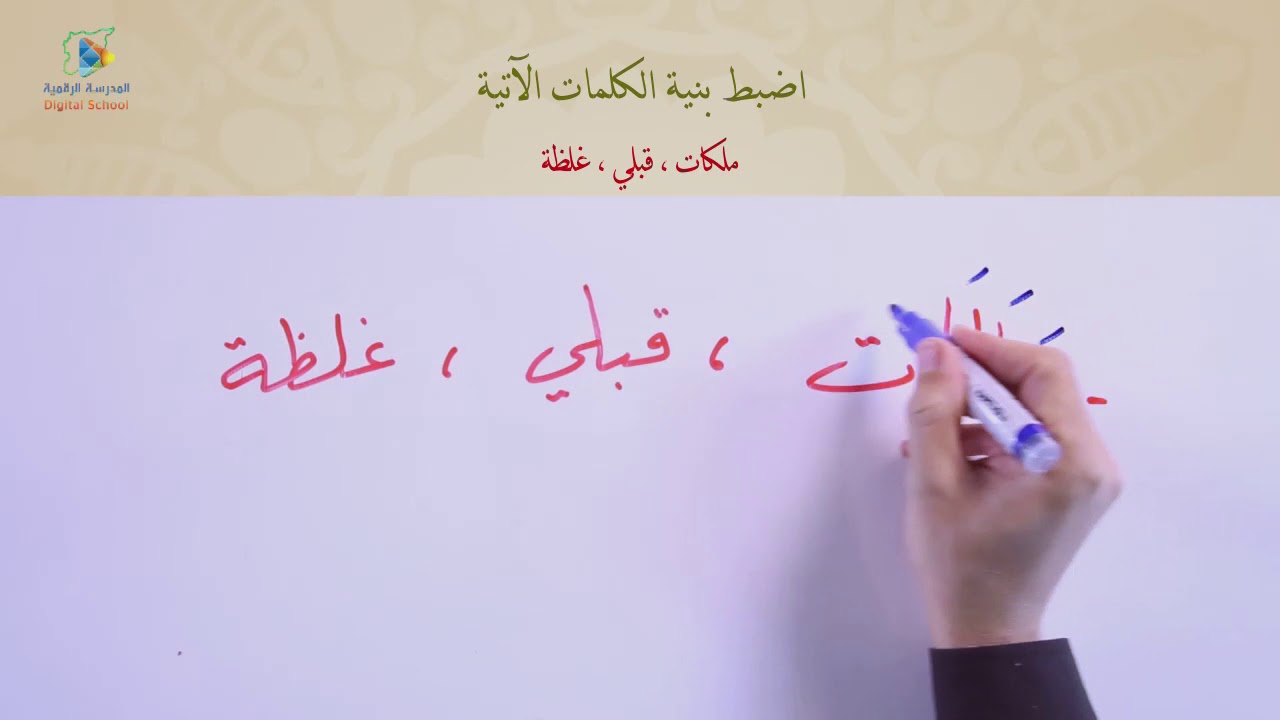 المدرسة الرقمية
Digital School
اضبط بنية الكلمات الآتية
ملكات ، قبلي ، غلظة
، قبلي ، غلظة